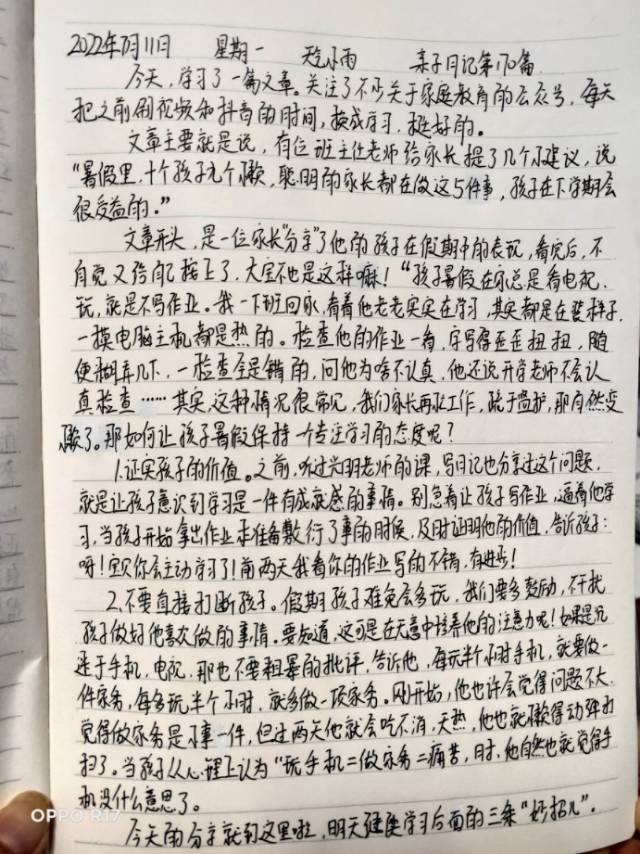 2022年7月11日 星期一 天气小雨 亲子日记第170篇
今天,学习了一篇文章。关注了不少关于家庭教育的公众号,每天
把之前刷视频和抖音的时间,换成学习,挺好的。
文章主要就是说,有位班主任老师给家长提了几个小建议,说
“暑假里,十个孩子九个懒,聪明的家长都在做这5件事,孩子在下学期会
很受益的。”
文章开头,是一位家长“分享”了他的孩子在假期中的表现,看完后,不
自觉又给自己接上了,大宝不也是这样嘛!“孩子暑假在家总是看电视、
玩,就是不写作业。我一下班回家,看着他老老实实在学习,其实都是在装样子,
一摸电脑主机都是热的。检查他的作业一看,字写得歪歪扭扭,随
便糊弄几下,一检查全是错的,问他为啥不认真,他还说开学老师不会认
真检查……其实,这种情况很常见,我们家长再忙工作,疏于监护,那自然变
懒了。那如何让孩子暑假保持一个专注学习的态度呢?
1.证实孩子的价值。之前,听过兴明老师的课,写日记也分享过这个问题,
就是让孩子意识到学习是一件有成就感的事情。别急着让孩子写作业,逼着他学
习,当孩子开始拿出作业本准备敷衍了事的时候,及时证明他的价值,告诉孩子:
呀!宝贝你会主动学习了!前两天我看你的作业写的不错,有进步!
2.不要直接打断孩子。假期孩子难免会多玩,我们要多鼓励,不干扰
孩子做好他喜欢做的事情。要知道,这可是在无意中培养他的注意力呢!如果是沉
迷于手机、电视,那也不要粗暴的批评,告诉他,每玩半个小时手机,就要做一
件家务,每多玩半个小时,就多做一项家务。刚开始,他也许会觉得问题不大,
觉得做家务是小事一件,但过两天他就会吃不消,天热,他也就懒得动弹打
扫了。当孩子从心理上认为“玩手机=做家务=痛苦,日时,他自然也就觉得手
机没什么意思了。
今天的分享就到这里啦,明天继续学习后面的三条“妙招儿”。
OPPO R17